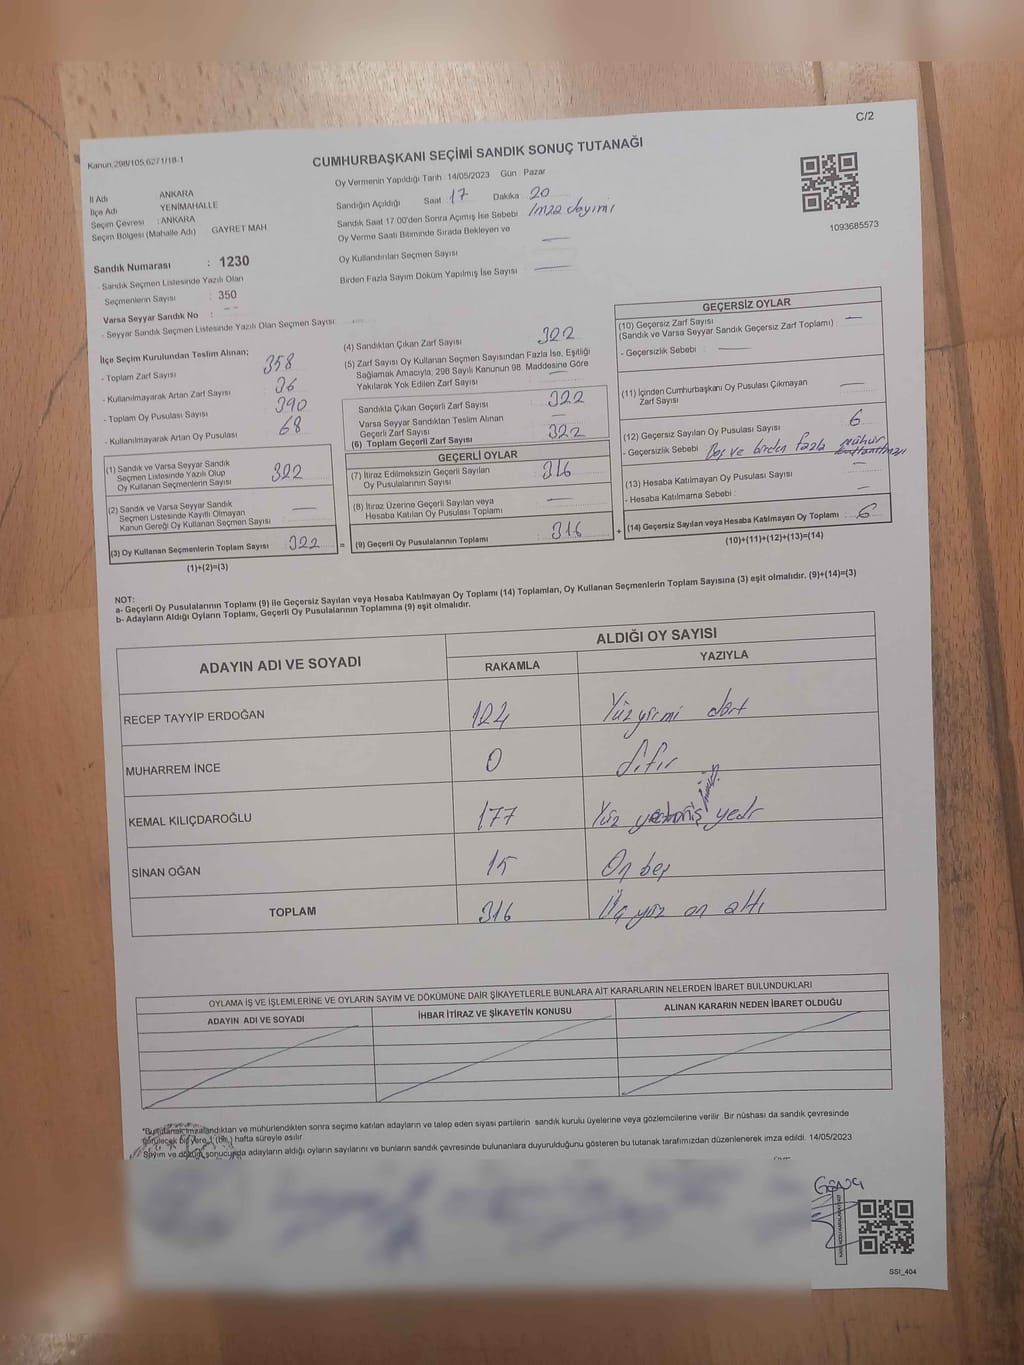 C/2
Kanun;298/105,6271/18-1
CUMHURBAŞKANI SEÇİMİ SANDIK SONUÇ TUTANAĞI
İl Adı ANKARA
İlçe Adı YENİMAHALLE
Seçim Çevresi : ANKARA
Seçim Bölgesi (Mahalle Adı) GAYRET MAH.
Oy Vermenin Yapıldığı Tarih 14/05/2023 Gün Pazar
Sandığın Açıldığı Saat 17 Dakika 20
Sandık Saat 17:00'den Sonra Açımış İse Sebebi İmza sayımı
Oy Verme Saati Bitiminde Sırada Bekleyen ve
Oy Kullandırılan Seçmen Sayısı
Birden Fazla Sayım Döküm Yapılmış İse Sayısı
1093685573
Sandık Numarası : 1230
- Sandık Seçmen Listesinde Yazılı Olan
Seçmenlerin Sayısı : 350
Varsa Seyyar Sandık No : - -
- Seyyar Sandık Seçmen Listesinde Yazılı Olan Seçmen Sayısı:
İlçe Seçim Kurulundan Teslim Alınan;
- Toplam Zarf Sayısı 358
- Kullanılmayarak Artan Zarf Sayısı 36
- Toplam Oy Pusulası Sayısı 390
- Kullanılmayarak Artan Oy Pusulası 68
(1) Sandık ve Varsa Seyyar Sandık
Seçmen Listesinde Yazılı Olup
Oy Kullanan Seçmenlerin Sayısı 322
(2) Sandık ve Varsa Seyyar Sandık
Seçmen Listesinde Kayıtlı Olmayan
Kanun Gereği Oy Kullanan Seçmen Sayısı —
(3) Oy Kullanan Seçmenlerin Toplam Sayısı 322 =
(1)+(2)=(3)
(4) Sandıktan Çıkan Zarf Sayısı 322
(5) Zarf Sayısı Oy Kullanan Seçmen Sayısından Fazla İse, Eşitliği
Sağlamak Amacıyla, 298 Sayılı Kanunun 98. Maddesine Göre
Yakılarak Yok Edilen Zarf Sayısı —
Sandıkta Çıkan Geçerli Zarf Sayısı 322
Varsa Seyyar Sandıktan Teslim Alınan
Geçerli Zarf Sayısı —
(6) Toplam Geçerli Zarf Sayısı 322
GEÇERLİ OYLAR
(7) İtiraz Edilmeksizin Geçerli Sayılan
Oy Pusulasının Sayısı 316
(8) İtiraz Üzerine Geçerli Sayılan veya
Hesaba Katılan Oy Pusulası Toplamı —
(9) Geçerli Oy Pusulalarının Toplamı 316 +
GEÇERSİZ OYLAR
(10) Geçersiz Zarf Sayısı —
(Sandık ve Varsa Seyyar Sandık Geçersiz Zarf Toplamı)
- Geçersizlik Sebebi : —
(11) İçinden Cumhurbaşkanı Oy Pusulası Çıkmayan
Zarf Sayısı —
(12) Geçersiz Sayılan Oy Pusulası Sayısı 6
- Geçersizlik Sebebi Boş ve birden fazla mühür
(13) Hesaba Katılmayan Oy Pusulası Sayısı —
- Hesaba Katılmama Sebebi : —
(14) Geçersiz Sayılan veya Hesaba Katılmayan Oy Toplamı 6
(10)+(11)+(12)+(13)=(14)
NOT:
a- Geçerli Oy Pusulalarının Toplamı (9) ile Geçersiz Sayılan veya Hesaba Katılmayan Oy Toplamı (14) Toplamları, Oy Kullanan Seçmenlerin Toplam Sayısına (3) eşit olmalıdır. (9)+(14)=(3)
b- Adayların Aldığı Oyların Toplamı, Geçerli Oy Pusulalarının Toplamına (9) eşit olmalıdır.
ADAYIN ADI VE SOYADI
ALDIĞI OY SAYISI
RAKAMLA YAZIYLA
RECEP TAYYİP ERDOĞAN 124 Yüz yirmi dört
MUHARREM İNCE 0 Sıfır
KEMAL KILIÇDAROĞLU 177 Yüz yetmiş yedi
SİNAN OĞAN 15 On beş
TOPLAM 316 Üç yüz on altı
OYLAMA İŞ VE İŞLEMLERİNE VE OYLARIN SAYIM VE DÖKÜMÜNE DAİR ŞİKAYETLERLE BUNLARA AİT KARARLARIN NELERDEN İBARET BULUNDUKLARI
ADAYIN ADI VE SOYADI İHBAR İTİRAZ VE ŞİKAYETİN KONUSU ALINAN KARARIN NEDEN İBARET OLDUĞU
*Bu tutanak imzalandıktan ve mühürlendikten sonra seçime katılan adayların ve talep eden siyasi partilerin sandık kurulu üyelerine veya gözlemcilerine verilir. Bir nüshası da sandık çevresinde
görülecek bir yere 1 (bir) hafta süreyle asılır
Sayım ve döküm sonucunda adayların aldığı oyların sayılarını ve bunların sandık çevresinde bulunanlara duyurulduğunu gösteren bu tutanak tarafımızdan düzenlenerek imza edildi. 14/05/2023
SSI_404